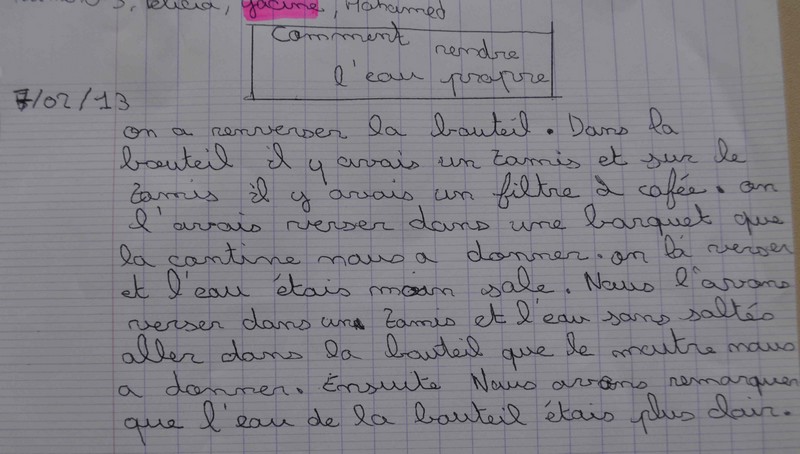 s, Felicia, Yacine, Mohamed
Comment rendre
l'eau propre
7/02/13
on a renverser la bouteil. Dans la
bouteil il y avais un tamis et sur le
tamis il y avais un filtre à cafée. on
l'avais verser dans une barquet que
la cantine nous a donner. on l'à verser
et l'eau étais moin sale. Nous l'avons
verser dans un tamis et l'eau sans saltés
aller dans la bouteil que le maitre nous
a donner. Ensuite Nous avons remarquer
que l'eau de la bouteil étais plus clair.